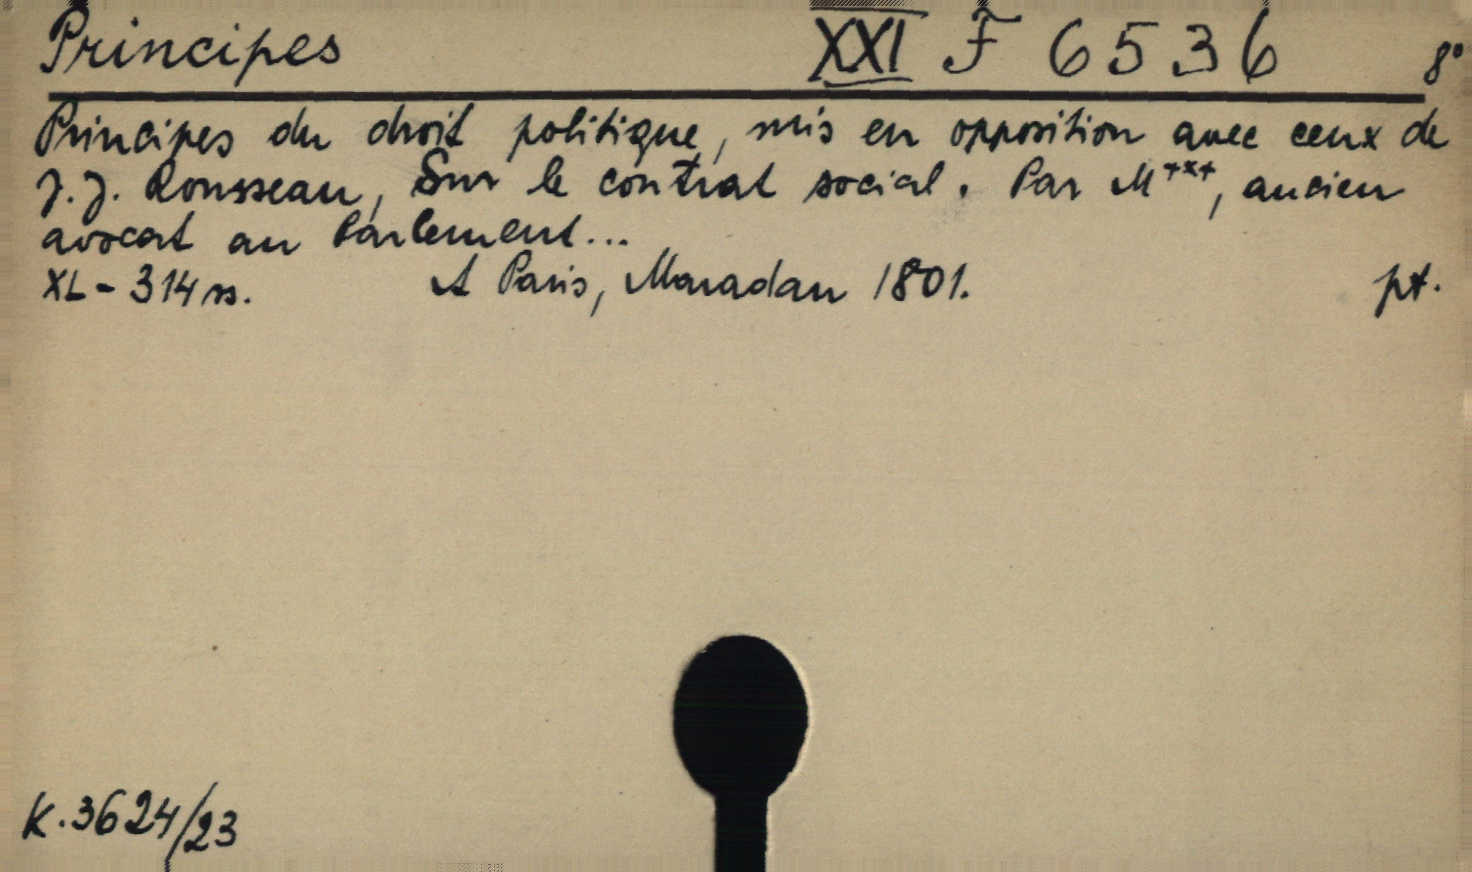 Principes XXI F 6536 8°
Principes du droit politique, mis en opposition avec ceux de
J. J. Rousseau, Sur le contrat social. Par M***, ancien
avocat au Parlement...
XL - 314 ss. A Paris, Maradan 1801. pt.
K. 3624/23